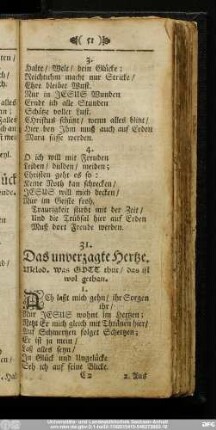 51
3.
Halte / Welt / dein Glücke:
Reichthum macht nur Stricke /
Ehre bleibet Wust.
Nur in JESUS Wunden
Sind ich alle Stunden
Schätze voller Lust.
Christus schützt / wenn alles blitzt /
Hier von Ihm mich auch auf Erden
Mara süsse werden.
4.
O ich will mit Freuden
Leiden / dulden / meiden;
Christen geht es so:
Keine Noth kan schrecken /
JESUS will mich decken /
Nur im Geiste froh,
Traurigkeit stirbt mit der Zeit /
Und die Trübsal hier auf Erden
Muß dort Freude werden.
31.
Das unverzagte Hertze.
Melod. Was GOTT thut / das ist
wol gethan.
1.
ACh last mich gehn / ihr Sorgen
ihr /
Mir JESUS wohnt im Hertzen:
Netzt Er mich gleich mit Thränen hier /
Auf Schmertzen folget Schertzen;
Er ist ja mein /
Laß alles seyn /
In Glück und Ungelücke
Seh ich auf seine Blicke.
E 2
2. Aus